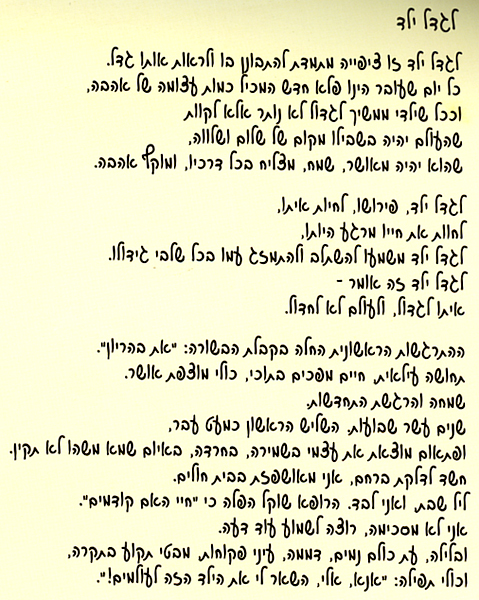 לגדל ילד
לגדל ילד זו ציפייה מתמדת להתבונן בו ולראות אותו גדל.
כל יום שעובר הינו פלא חדש המכיל כמות עצומה של אהבה,
וככל שילדי ממשיך לגדול לא נותר אלא לקוות
שהעולם יהיה בשבילו מקום של שלום ושלווה,
שהוא יהיה מאושר, שמח, מצליח בכל דרכיו, ומוקף אהבה.
לגדל ילד, פירושו, לחיות איתו,
לחוות את חייו מרגע היותו,
לגדל ילד משמעו להשתלב ולהתמזג עמו בכל שלבי גידולו.
לגדל ילד זה אומר -
איתו לגדול, ולעולם לא לחדול.
ההתרגשות הראשונית החלה בקבלת הבשורה: "את בהריון".
תחושה עילאית, חיים מפכים בתוכי, כולי מוצפת אושר.
שמחה והרגשת התחדשות.
שנים עשר שבועות, השליש הראשון כמעט עבר,
ופתאום מוצאת את עצמי בשמירה, בחרדה, באיום שמא משהו לא תקין.
חשד לדלקת ברחם, אני מאושפזת בבית חולים.
ליל שבת, ואני לבד. הרופא שוקל הפלה כי "חיי האם קודמים".
אני לא מסכימה, רוצה לשמוע עוד דעה.
ובלילה, עת כולם נמים, דממה, עיני פקוחות, מבטי תקוע בתקרה,
וכולי תפילה: "אנא, אלי, השאר לי את הילד הזה לעולמים!".